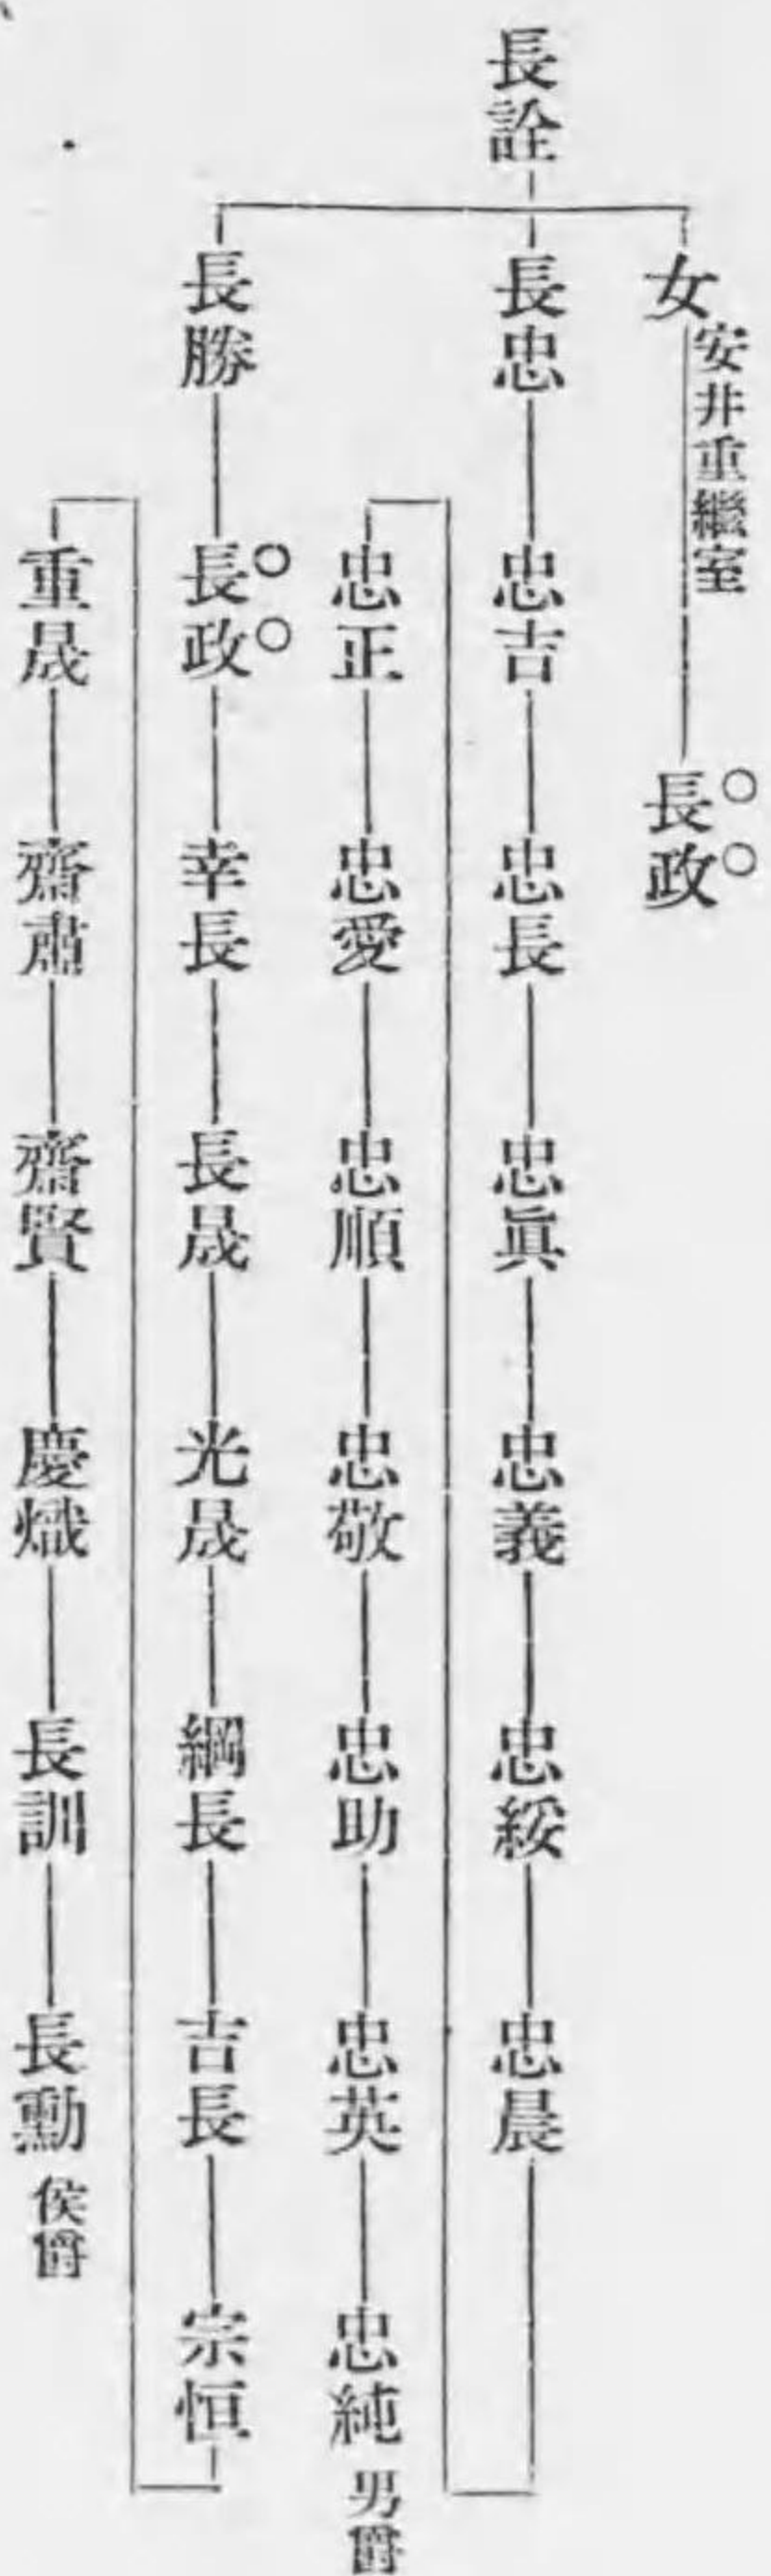 長詮
女 安井重繼室 長政
長忠 忠吉 忠長 忠眞 忠義 忠綏 忠晨
忠正 忠愛 忠順 忠敬 忠助 忠英 忠純 男爵
長勝 長政 幸長 長晟 光晟 綱長 吉長 宗恒
重晟 齋肅 齋賢 慶熾 長訓 長勳 侯爵